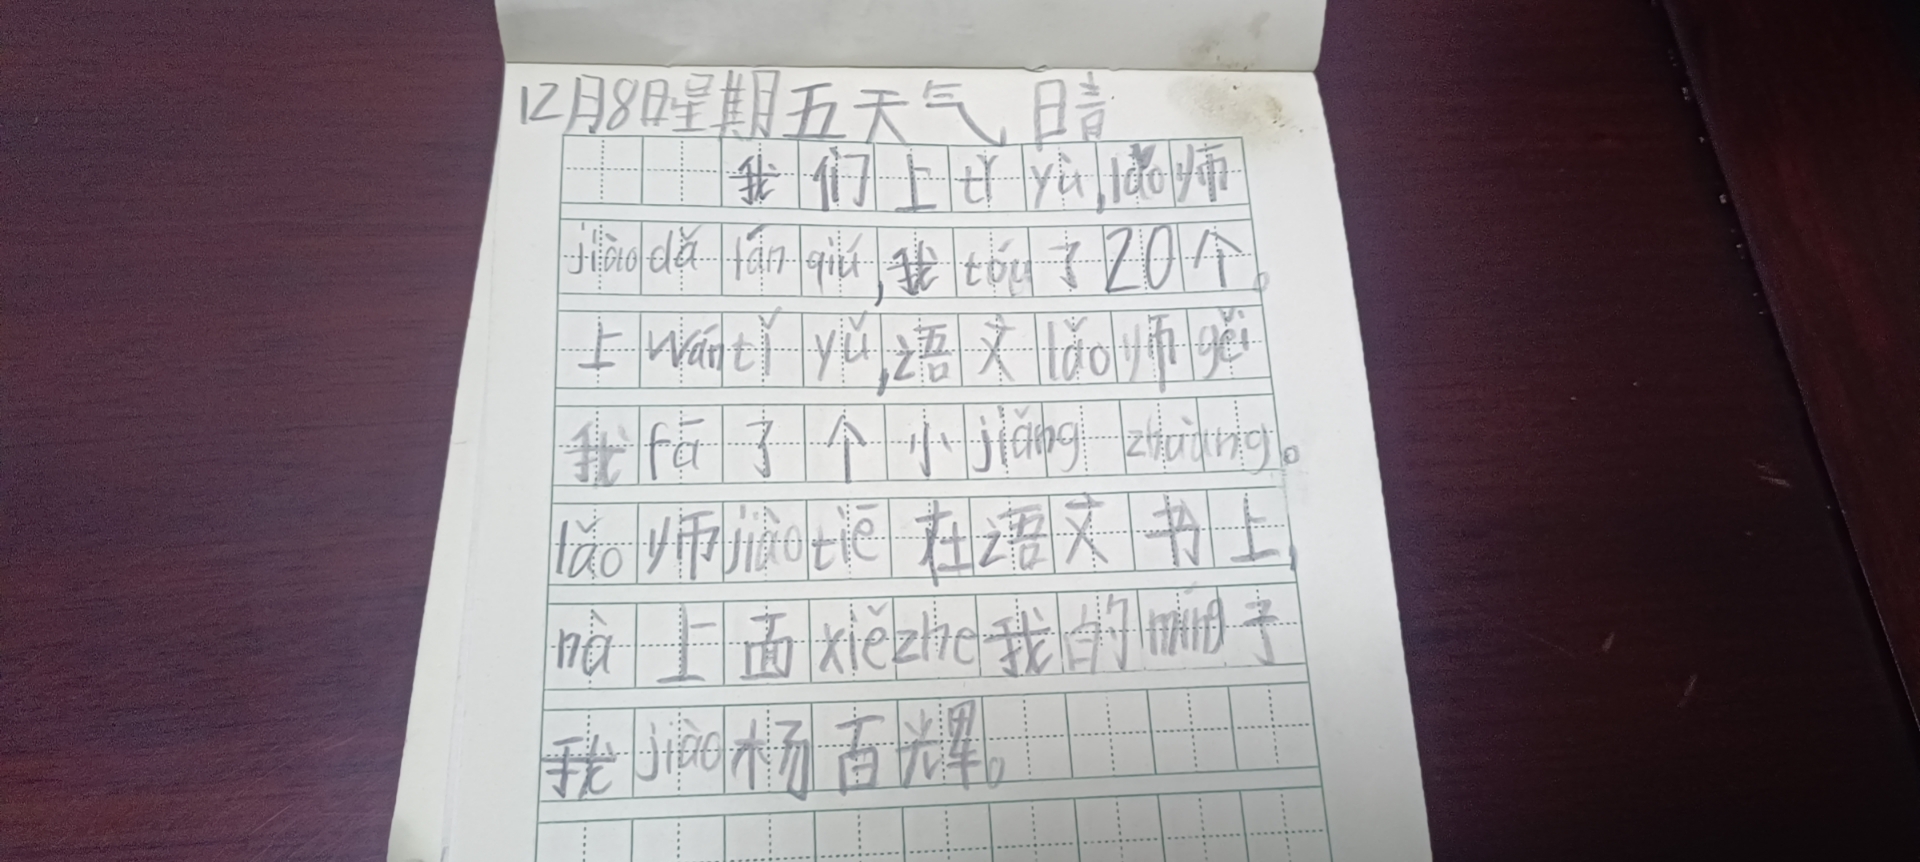 12月8日星期五天气 晴
我们上tǐ yù,lǎo师
jiào dǎ lán qiú,我tóu了20个。
上wán tǐ yǔ,语文lǎo师gěi
我fā了个小jiǎng zhàung。
lǎo师jiào tiē在语文书上,
nà上面xiě zhe我的míng子
我jiào杨百辉。